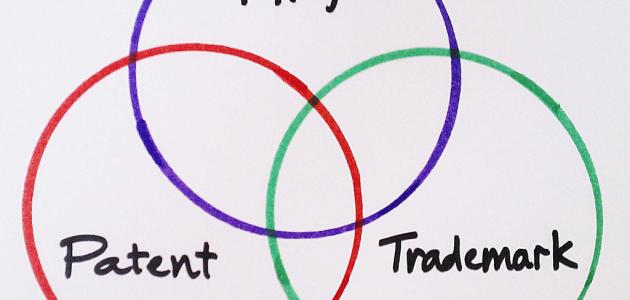 Patent
Trademark